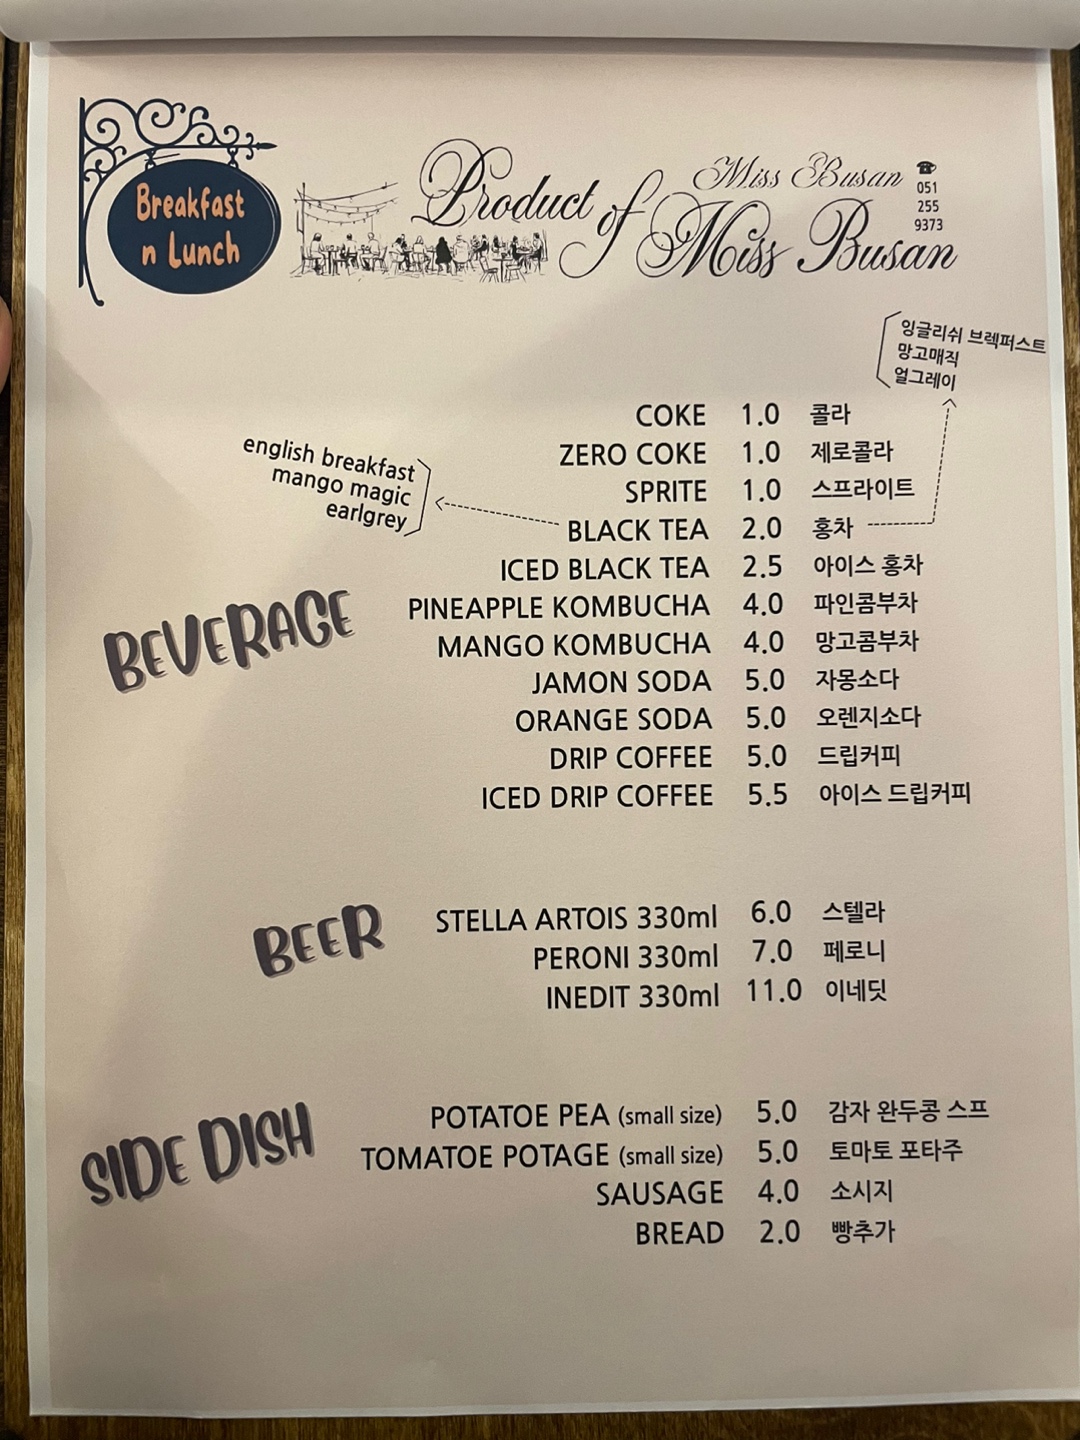 Breakfast
n Lunch
Product of Miss Busan
Miss Busan
☎
051
255
9373
잉글리쉬 브렉퍼스트
망고매직
얼그레이
COKE 1.0 콜라
ZERO COKE 1.0 제로콜라
SPRITE 1.0 스프라이트
english breakfast
mango magic
earlgrey
BLACK TEA 2.0 홍차
ICED BLACK TEA 2.5 아이스 홍차
BEVERAGE
PINEAPPLE KOMBUCHA 4.0 파인콤부차
MANGO KOMBUCHA 4.0 망고콤부차
JAMON SODA 5.0 자몽소다
ORANGE SODA 5.0 오렌지소다
DRIP COFFEE 5.0 드립커피
ICED DRIP COFFEE 5.5 아이스 드립커피
BEER
STELLA ARTOIS 330ml 6.0 스텔라
PERONI 330ml 7.0 페로니
INEDIT 330ml 11.0 이네딧
SIDE DISH
POTATOE PEA (small size) 5.0 감자 완두콩 스프
TOMATOE POTAGE (small size) 5.0 토마토 포타주
SAUSAGE 4.0 소시지
BREAD 2.0 빵추가